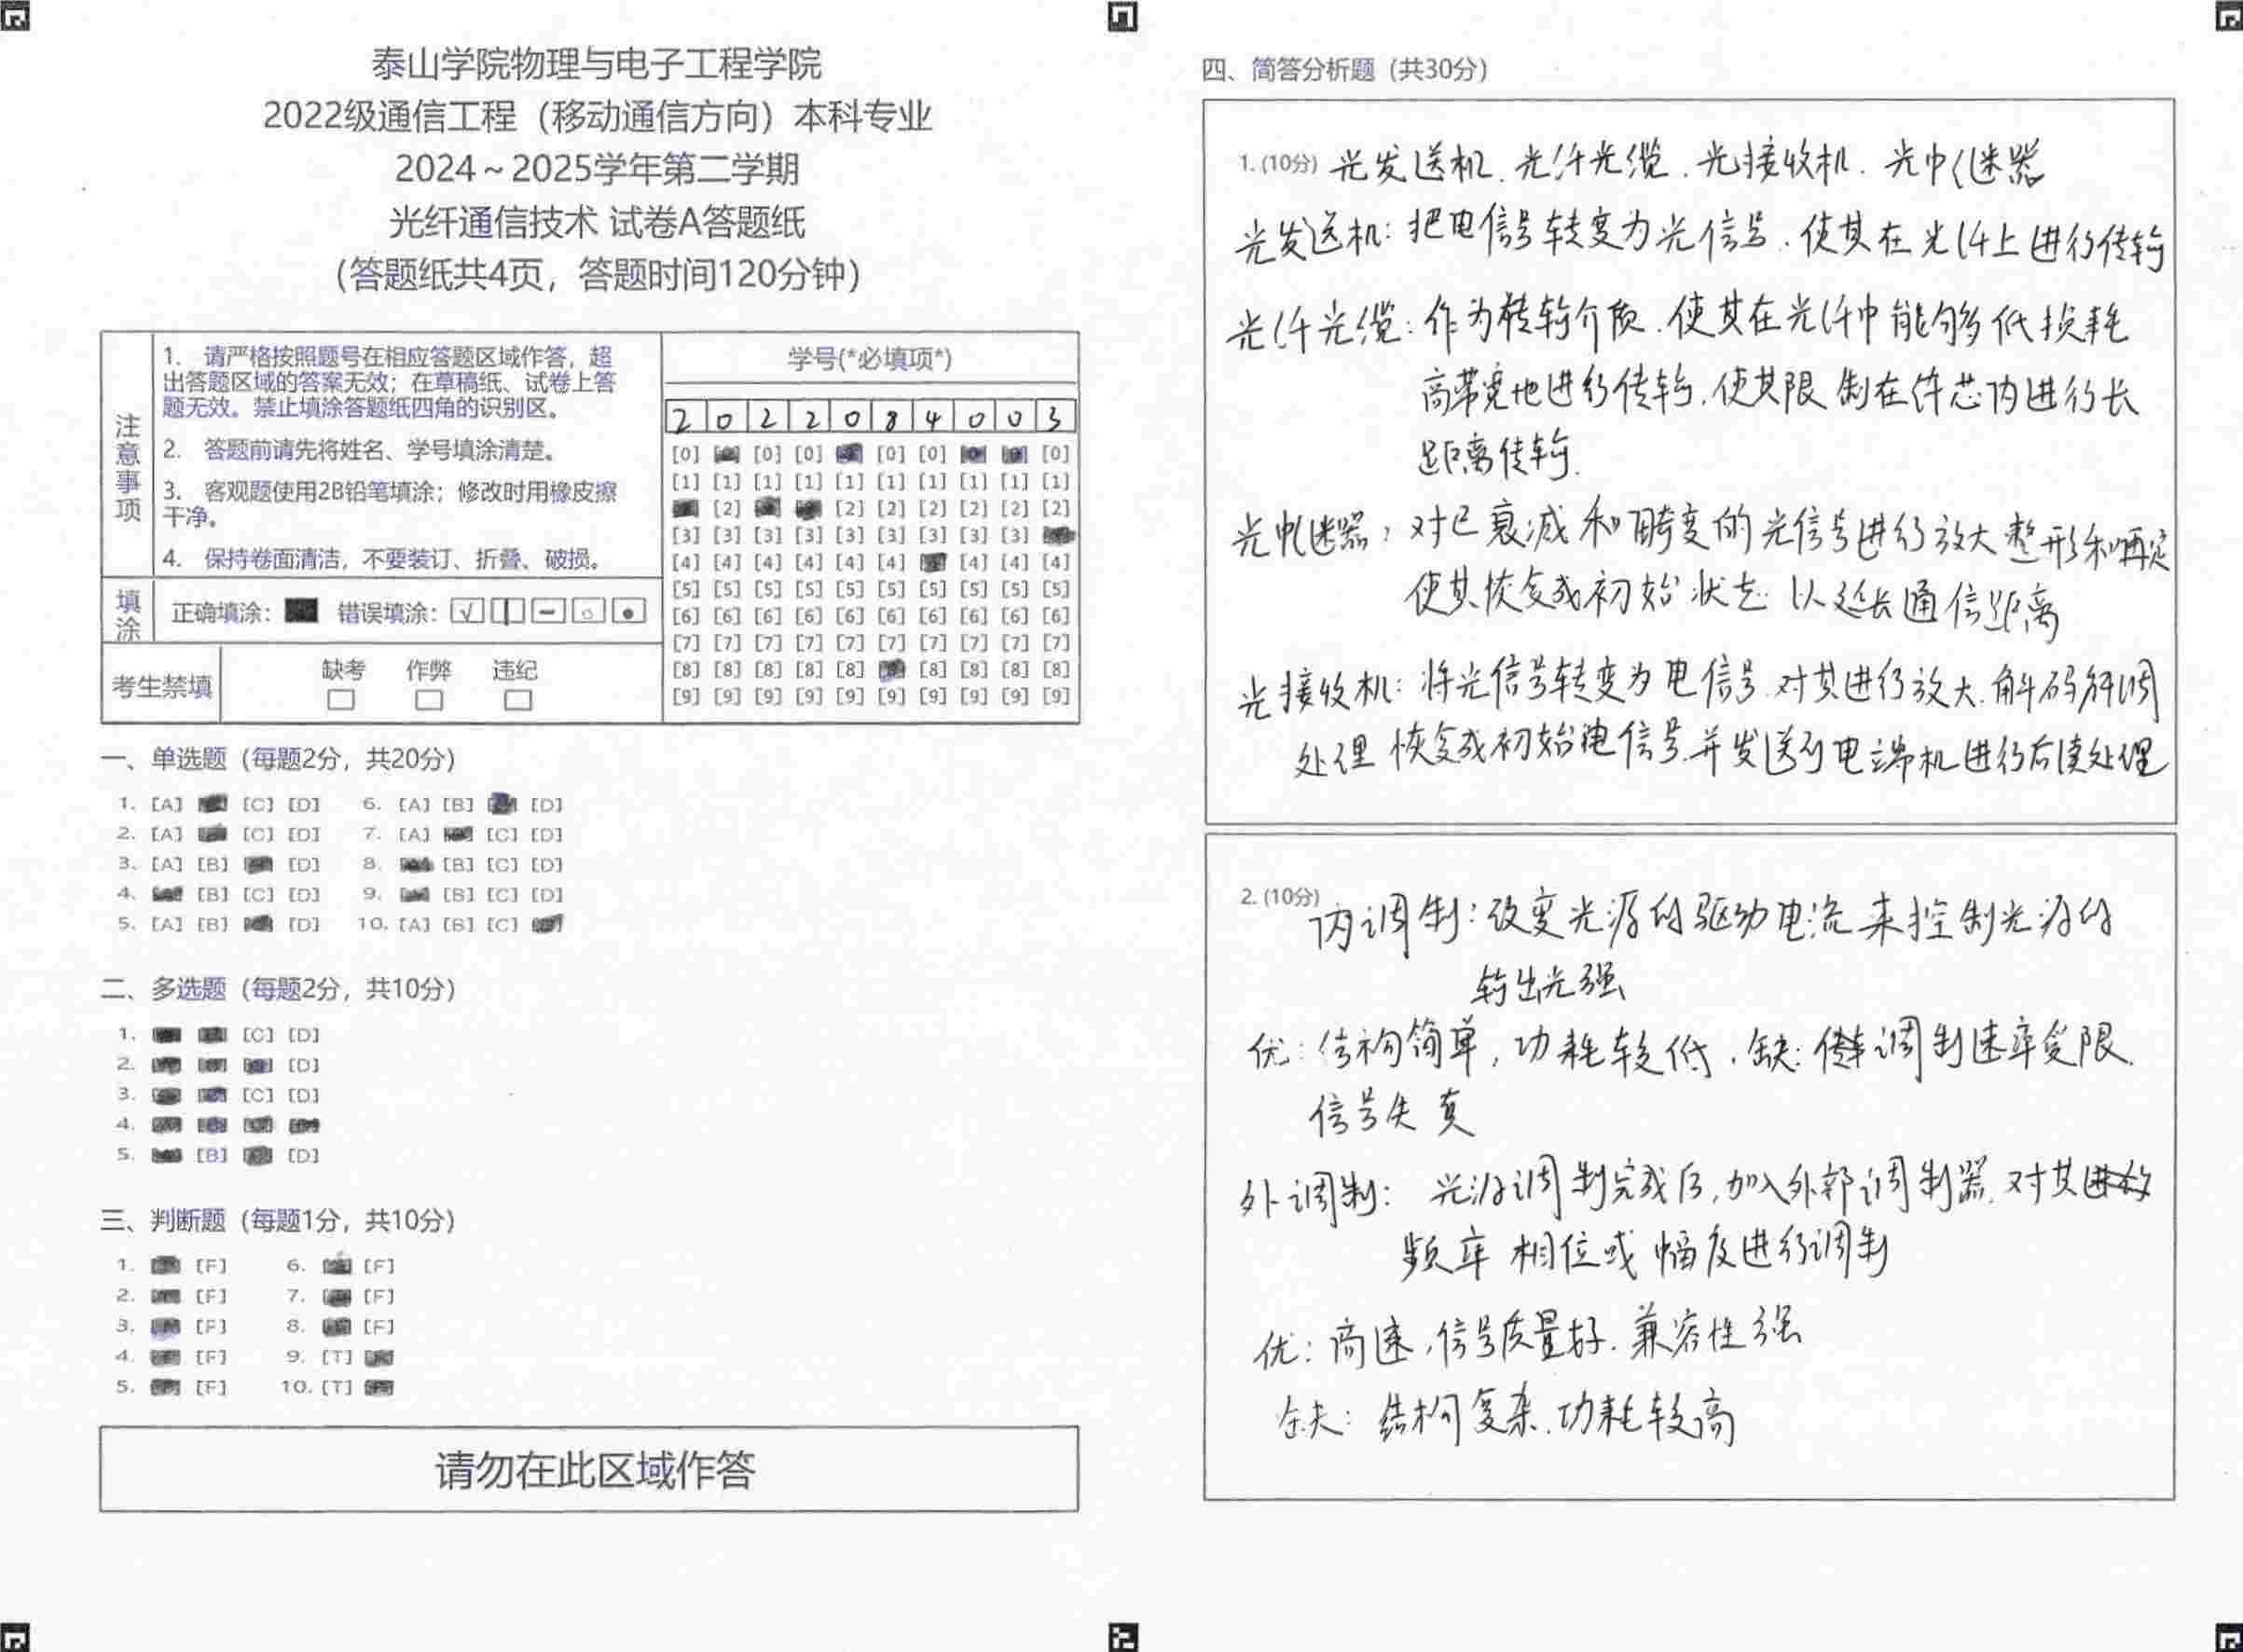 泰山学院物理与电子工程学院
2022级通信工程（移动通信方向）本科专业
2024～2025学年第二学期
光纤通信技术 试卷A答题纸
（答题纸共4页，答题时间120分钟）
注意事项
1. 请严格按照题号在相应答题区域作答，超
出答题区域的答案无效；在草稿纸、试卷上答
题无效。禁止填涂答题纸四角的识别区。
2. 答题前请先将姓名、学号填涂清楚。
3. 客观题使用2B铅笔填涂；修改时用橡皮擦
干净。
4. 保持卷面清洁，不要装订、折叠、破损。
填涂
正确填涂： 错误填涂：
考生禁填
缺考 作弊 违纪
学号(*必填项*)
2 0 2 2 0 8 4 0 0 3
[0] [0] [0] [0] [0] [0]
[1] [1] [1] [1] [1] [1] [1] [1] [1] [1]
[2] [2] [2] [2] [2] [2] [2]
[3] [3] [3] [3] [3] [3] [3] [3] [3]
[4] [4] [4] [4] [4] [4] [4] [4] [4]
[5] [5] [5] [5] [5] [5] [5] [5] [5] [5]
[6] [6] [6] [6] [6] [6] [6] [6] [6] [6]
[7] [7] [7] [7] [7] [7] [7] [7] [7] [7]
[8] [8] [8] [8] [8] [8] [8] [8] [8]
[9] [9] [9] [9] [9] [9] [9] [9] [9] [9]
一、单选题（每题2分，共20分）
1. [A] [C] [D] 6. [A] [B] [D]
2. [A] [C] [D] 7. [A] [C] [D]
3. [A] [B] [D] 8. [B] [C] [D]
4. [B] [C] [D] 9. [B] [C] [D]
5. [A] [B] [D] 10. [A] [B] [C]
二、多选题（每题2分，共10分）
1. [C] [D]
2. [D]
3. [C] [D]
4.
5. [B] [D]
三、判断题（每题1分，共10分）
1. [F] 6. [F]
2. [F] 7. [F]
3. [F] 8. [F]
4. [F] 9. [T]
5. [F] 10. [T]
请勿在此区域作答
四、简答分析题（共30分）
1. (10分) 光发送机. 光纤光缆. 光接收机. 光中继器
光发送机：把电信号转变为光信号. 使其在光纤上进行传输
光纤光缆：作为传输介质. 使其在光纤中能够低损耗
高带宽地进行传输. 使其限制在纤芯内进行长
距离传输.
光中继器：对已衰减和畸变的光信号进行放大整形和再定
使其恢复成初始状态 以延长通信距离
光接收机：将光信号转变为电信号. 对其进行放大. 解码解调
处理 恢复成初始电信号. 并发送到电端机进行后续处理
2. (10分) 内调制：改变光源的驱动电流来控制光源的
输出光强
优：结构简单，功耗较低. 缺：调制速率受限.
信号失真
外调制：光源调制完成后，加入外部调制器. 对其
频率 相位或幅度进行调制
优：高速，信号质量好. 兼容性强
缺：结构复杂. 功耗较高